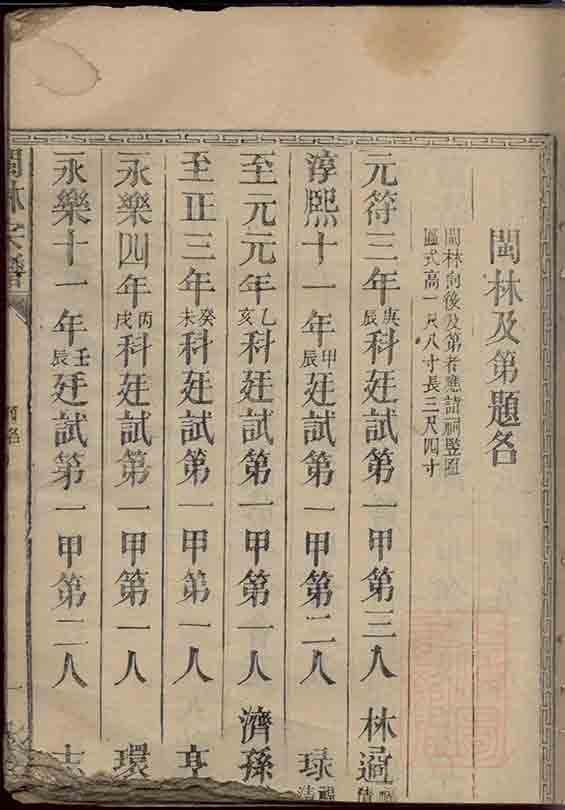 閩林及第題名
閩林向後及第者應詣祠竪匾
匾式高一尺八寸長三尺四寸
元符三年庚辰科廷試第一甲第三人 林遹
淳熙十一年甲辰廷試第一甲第二人 㻉
至元元年乙亥科廷試第一甲第一人 濟孫
至正三年癸未科廷試第一甲第一人 亨
永樂四年丙戌科廷試第一甲第一人 環
永樂十一年壬辰廷試第一甲第二人 志